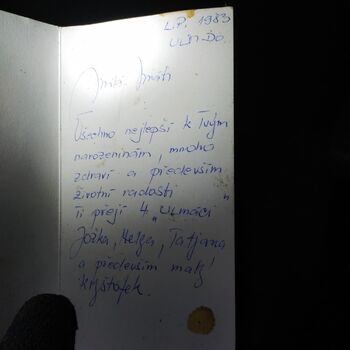 L.P. 1983
ULM-DO
Všechno nejlepší k Tvým
narozeninám, mnoho
zdraví a především
životní radosti
Ti přejí 4 „ULMÁCI"
Jožka, Helga, Tatjana
a především malý
Kryštofek.